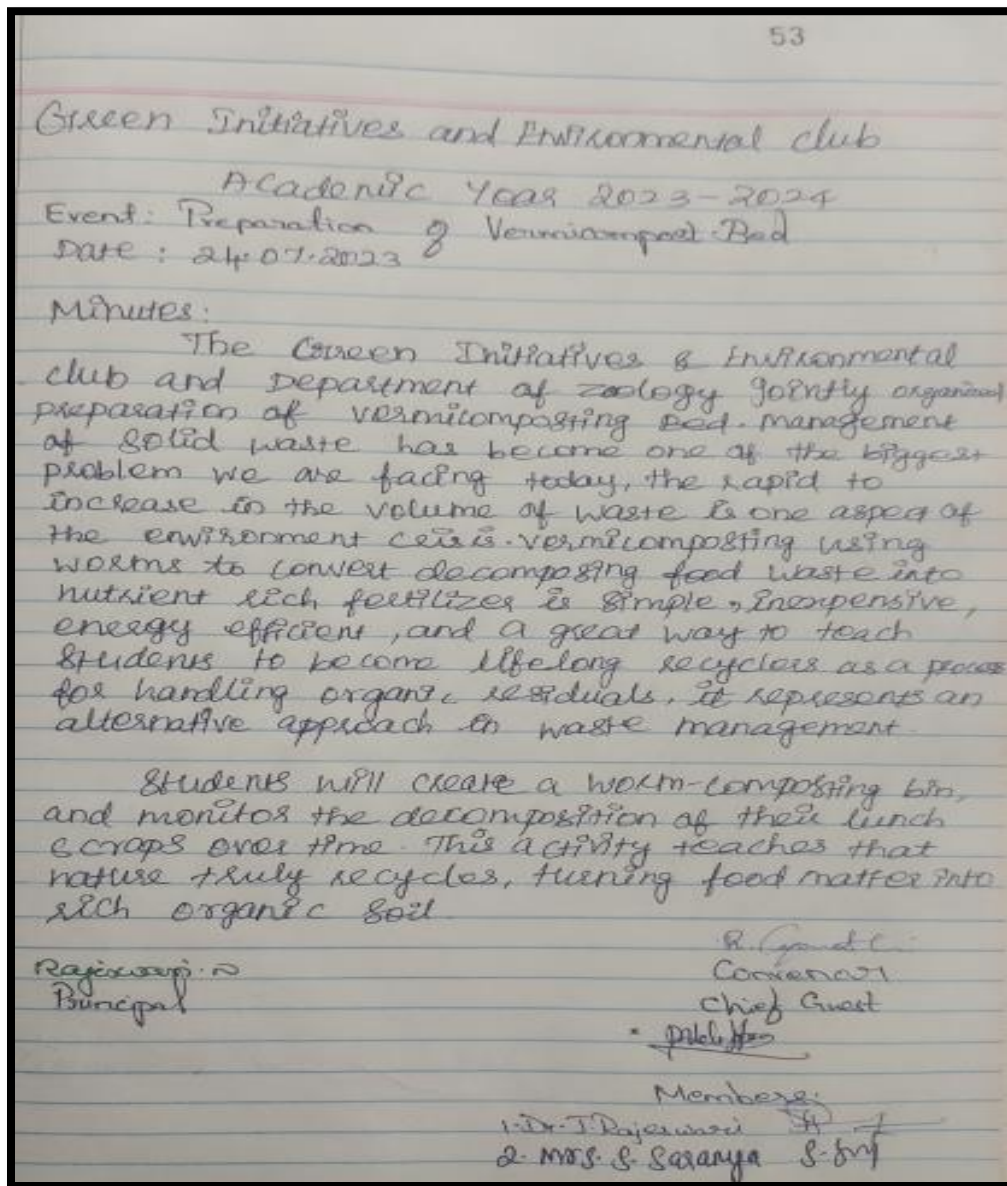 53
Green Initiatives and Environmental club
Academic Year 2023-2024
Event: Preparation of Vermicompost Bed
Date : 24.07.2023
Minutes:
The Green Initiatives & Environmental
club and Department of zoology jointly organized
preparation of vermicomposting Bed. management
of solid waste has become one of the biggest
problem we are facing today, the rapid to
increase in the volume of waste is one aspect of
the environment crisis. vermicomposting using
worms to convert decomposing food waste into
nutrient rich fertilizer is simple, inexpensive,
energy efficient, and a great way to teach
students to become lifelong recyclers as a process
for handling organic residuals, it represents an
alternative approach in waste management.
Students will create a worm-composting bin,
and monitor the decomposition of their lunch
scraps over time. This activity teaches that
nature truly recycles, turning food matter into
rich organic soil.
R.
Rajeswari. N
Convenor
Principal
Chief Guest
Members:
1. Dr. J Rajeswari
2. Mrs. S. Saranya